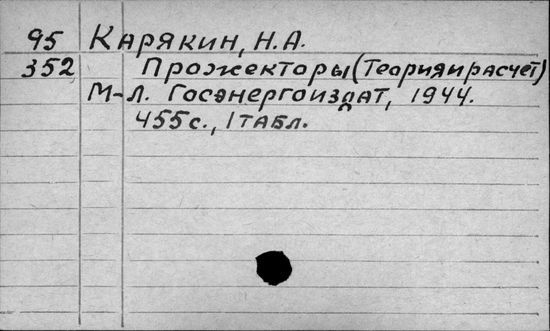 95 Карякин, Н.А.
352 Прожекторы (Теория и расчет)
М-Л. Госэнергоиздат, 1944.
455с., 1 табл.